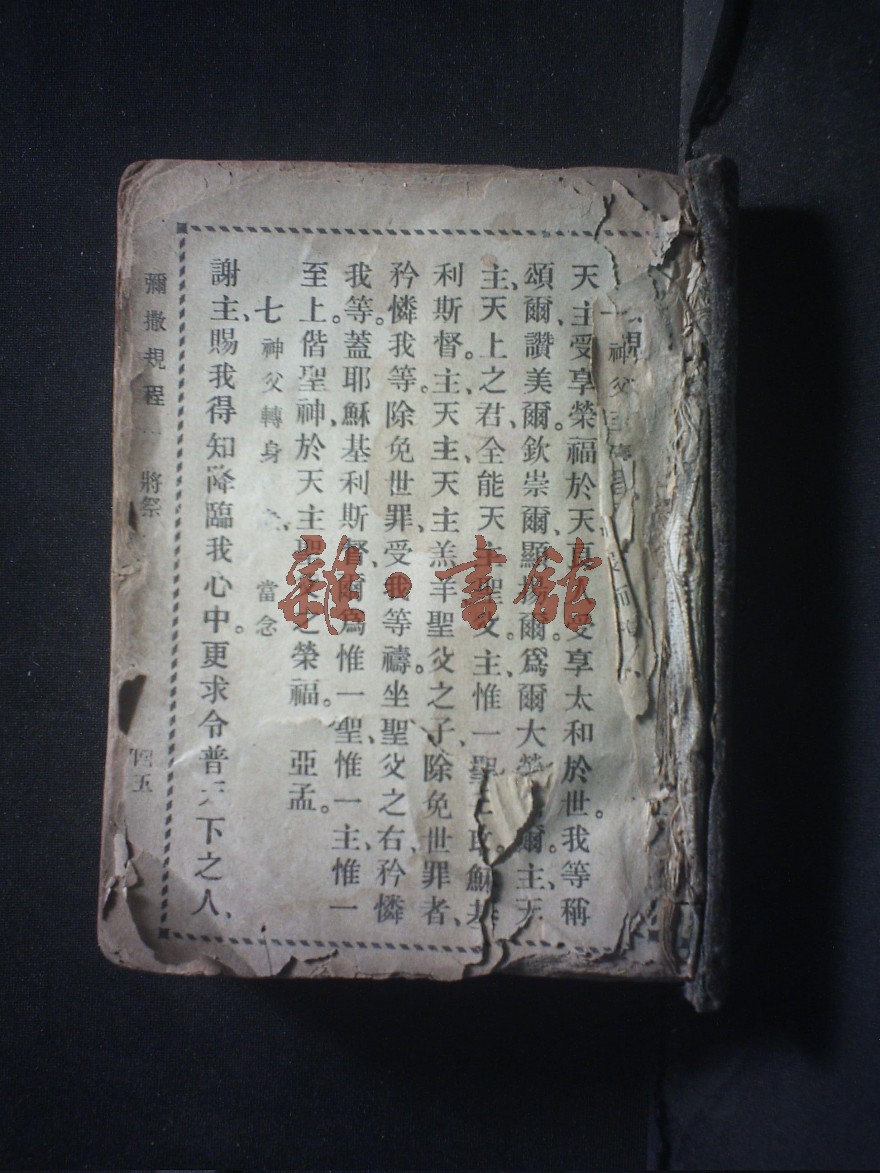 神父
天主受享榮福於天。受享太和於世。我等稱
頌爾、讚美爾。欽崇爾、顯揚爾。爲爾大榮爾。主、
主、天上之君、全能天主聖父。主惟一耶穌基
利斯督。主、天主、天主羔羊聖父之子、除免世罪者、
矜憐我等。除免世罪、受我等禱。坐聖父之右、矜憐
我等。蓋耶穌基利斯督、爾爲惟一聖、惟一主、惟一
至上。偕聖神、於天主聖父之榮福。亞孟。
七 神父轉身 當念
謝主、賜我得知降臨我心中。更求令普天下之人、
彌撒規程 將祭 四五
雜·書館